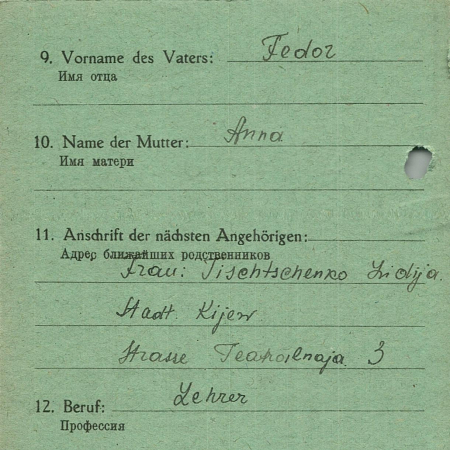 9. Vorname des Vaters: Fedor
Имя отца
10. Name der Mutter: Anna
Имя матери
11. Anschrift der nächsten Angehörigen:
Адрес ближайших родственников
Frau: Tischtschenko Lidija.
Stadt Kijew
Strasse 3
12. Beruf: Lehrer
Профессия